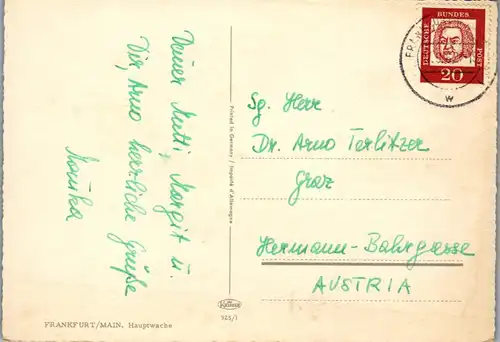 Deiner Mutti, Margit u.
Dir, Arno herzliche Grüße
Monika
FRANKFURT/MAIN. Hauptwache
Printed in Germany / Importé d'Allemagne
Krüger
923/1
DEUTSCHE BUNDES POST
20
FRANK
w
Sg. Herr
Dr. Arno Terlitzer
Graz
Hermann-Bahrgasse
AUSTRIA